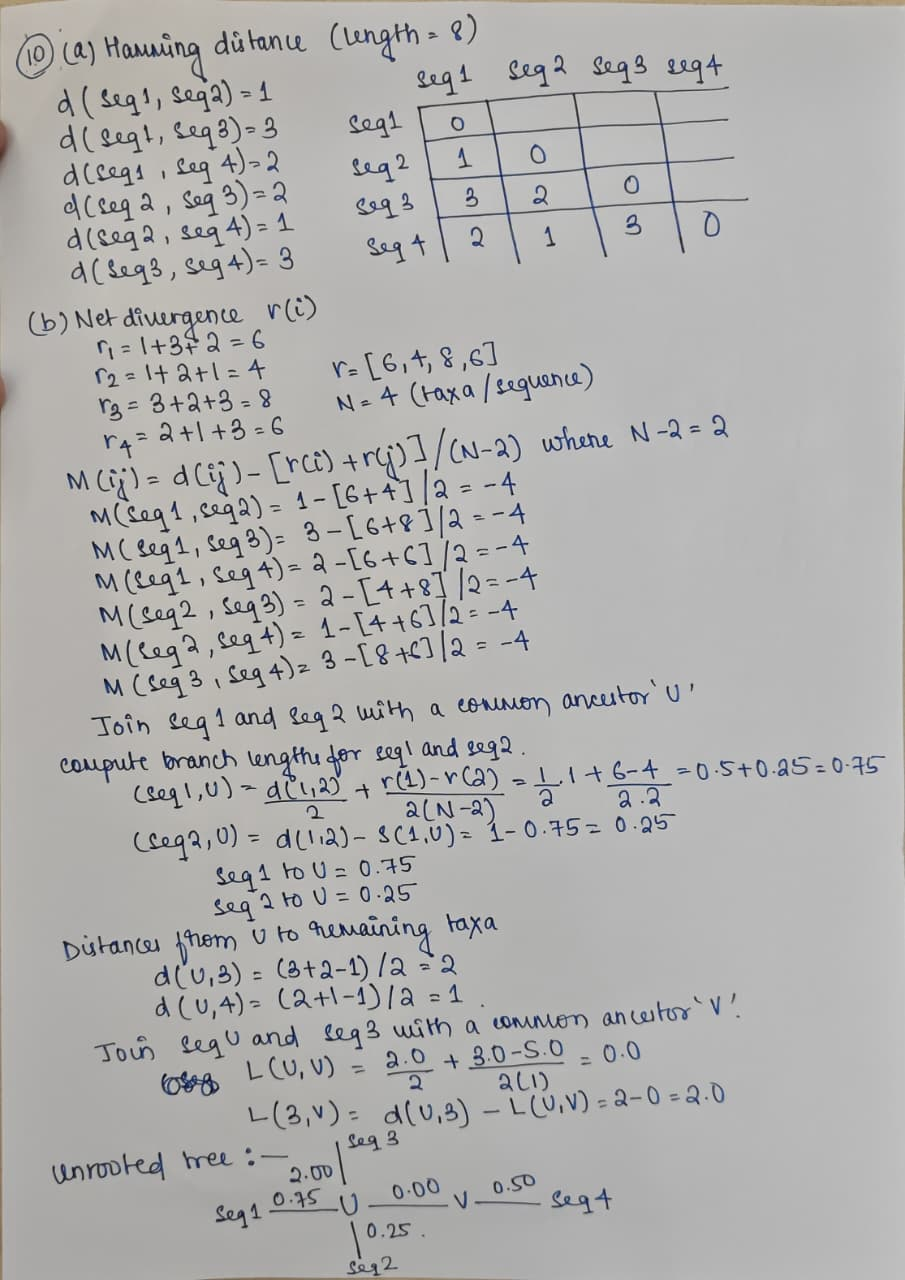 (10) (a) Hamming distance (length = 8)
d(seq1, seq2) = 1
d(seq1, seq3) = 3
d(seq1, seq4) = 2
d(seq2, seq3) = 2
d(seq2, seq4) = 1
d(seq3, seq4) = 3
seq1 seq2 seq3 seq4
seq1 0
seq2 1 0
seq3 3 2 0
seq4 2 1 3 0
(b) Net divergence r(i)
r₁ = 1+3+2 = 6
r₂ = 1+2+1 = 4
r₃ = 3+2+3 = 8
r₄ = 2+1+3 = 6
r = [6,4,8,6]
N = 4 (taxa/sequence)
M(ij) = d(ij) - [r(i) + r(j)]/(N-2) where N-2 = 2
M(seq1, seq2) = 1-[6+4]/2 = -4
M(seq1, seq3) = 3-[6+8]/2 = -4
M(seq1, seq4) = 2-[6+6]/2 = -4
M(seq2, seq3) = 2-[4+8]/2 = -4
M(seq2, seq4) = 1-[4+6]/2 = -4
M(seq3, seq4) = 3-[8+6]/2 = -4
Join seq1 and seq2 with a common ancestor 'U'
compute branch lengths for seq1 and seq2.
(seq1,U) = d(1,2)/2 + r(1)-r(2)/2(N-2) = 1/2.1 + 6-4/2.2 = 0.5+0.25 = 0.75
(seq2,U) = d(1,2) - S(1,U) = 1-0.75 = 0.25
seq1 to U = 0.75
seq2 to U = 0.25
Distances from U to remaining taxa
d(U,3) = (3+2-1)/2 = 2
d(U,4) = (2+1-1)/2 = 1.
Join seqU and seq3 with a common ancestor 'V'.
L(U,V) = 2.0/2 + 3.0-5.0/2(1) = 0.0
L(3,V) = d(U,3) - L(U,V) = 2-0 = 2.0
unrooted tree :-
seq3
2.00
seq1 0.75 U 0.00 V 0.50 seq4
0.25.
seq2